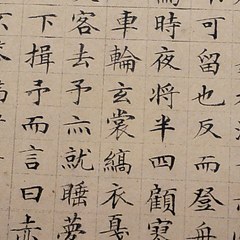 可留也反而登舟
時夜将半四顧寂
車輪玄裳縞衣戛
客去予亦就睡夢
下揖予而言曰赤